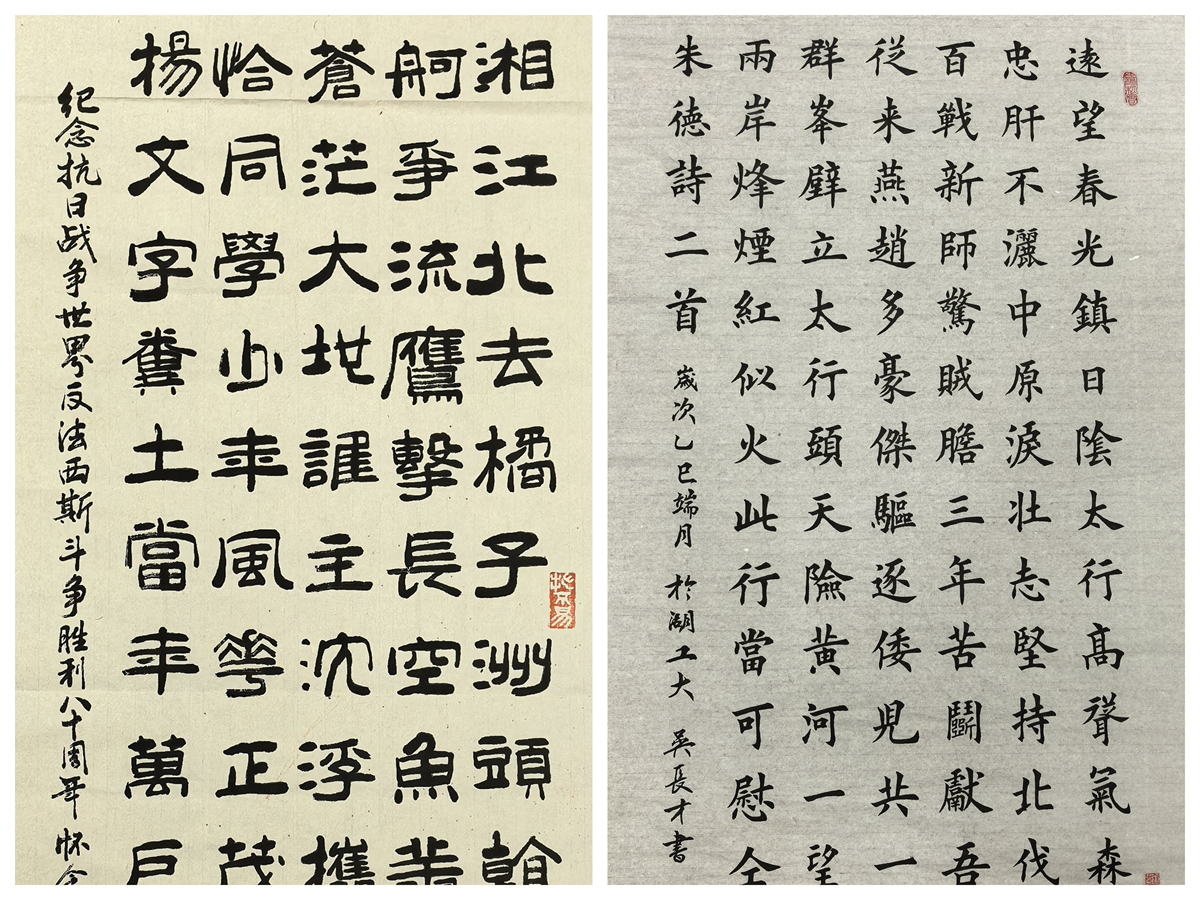 湘江北去橘子洲頭
舸爭流鷹擊長空魚
蒼茫大地誰主沈浮攜
恰同學少年風華正茂
揚文字糞土當年萬戶
纪念抗日战争世界反法西斯斗争胜利八十周年 怀念
遠望春光鎮日陰太行高聳氣森
忠肝不灑中原淚壯志堅持北伐
百戰新師驚賊膽三年苦鬭獻吾
從来燕趙多豪傑驅逐倭児共一
群峯壁立太行頭天險黄河一望
兩岸烽煙紅似火此行當可慰仝
朱德詩二首 歲次乙巳端月 於湖工大 吳長才書